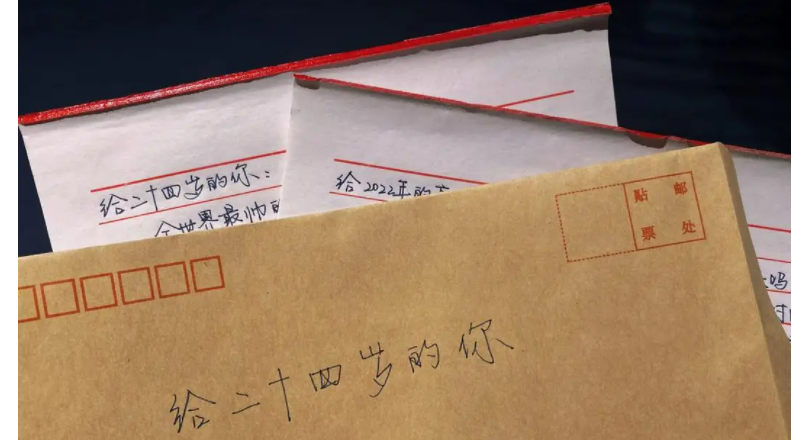 给二十四岁的你：
全世界最帅的
给2022年的
吗
贴 邮
票 处
给二十四岁的你